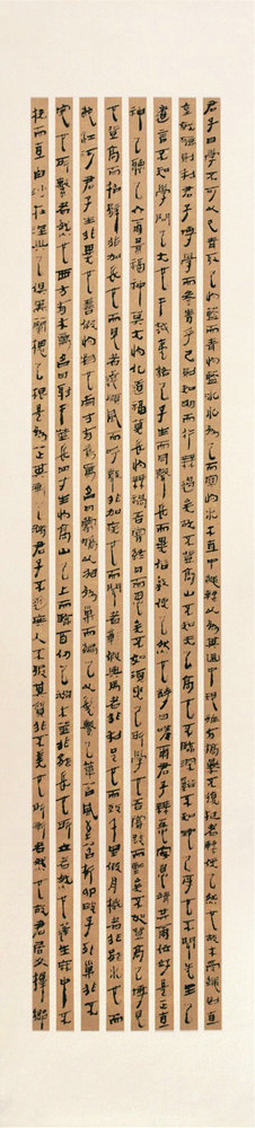 君子曰學不可以已青取之於藍而青於藍冰水為之而寒於水木直中繩輮以為其曲中規雖有槁暴不復挺者輮使之然也故木受繩則直
金就礪則利君子博學而參省乎己則知明而行無過矣故不登高山不知天之高也不臨深谿不知地之厚也不聞先王之
遺言不知學問之大也干越夷貉之子生而同聲長而異俗教使之然也詩曰嗟爾君子無恆安息靖共爾位好是正直
神之聽之介爾景福神莫大於化道福莫長於無禍吾嘗終日而思矣不如須臾之所學也吾嘗跂而望矣不如登高之博見
也登高而招臂非加長也而見者遠順風而呼聲非加疾也而聞者彰假輿馬者非利足也而致千里假舟楫者非能水也而
絕江河君子生非異也善假於物也南方有鳥焉名曰蒙鳩以羽為巢而編之以髮繫之葦苕風至苕折卵破子死巢非不
完也所繫者然也西方有木焉名曰射干莖長四寸生於高山之上而臨百仞之淵木莖非能長也所立者然也蓬生麻中不
扶而直白沙在涅與之俱黑蘭槐之根是為芷其漸之滫君子不近庶人不服其質非不美也所漸者然也故君居必擇鄉